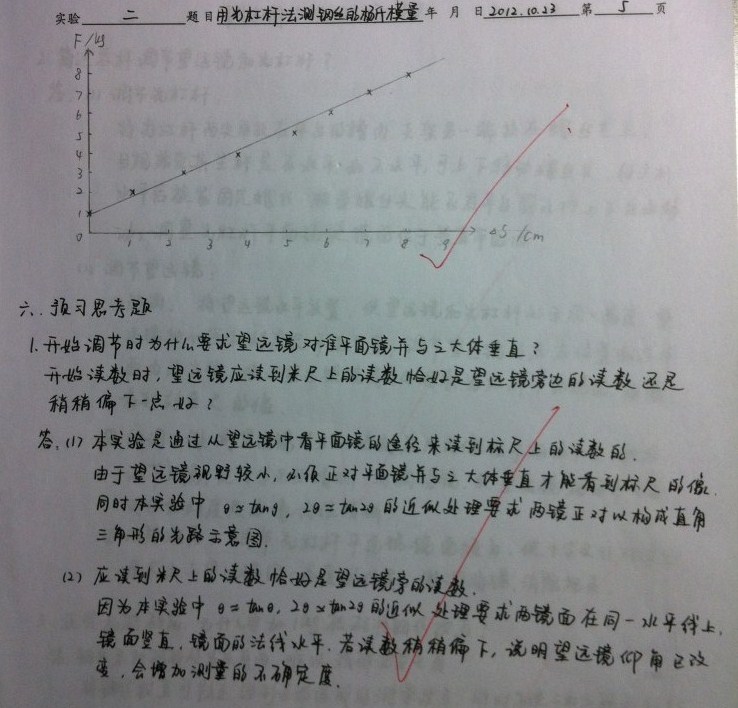 实验 二 题目 用光杠杆法测钢丝的杨氏模量 年 月 日 2012.10.23 第 5 页
F/kg
8
7
6
5
4
3
2
1
0 1 2 3 4 5 6 7 8 9 ΔS/cm
六. 预习思考题
1. 开始调节时为什么要求望远镜对准平面镜并与之大体垂直?
开始读数时,望远镜应读到米尺上的读数恰好是望远镜旁边的读数还是
稍稍偏下一点好?
答. (1) 本实验是通过从望远镜中看平面镜的途径来读到标尺上的读数的.
由于望远镜视野较小,必须正对平面镜并与之大体垂直才能看到标尺的像.
同时本实验中 θ≈tanθ, 2θ≈tan2θ 的近似处理要求两镜正对以构成直角
三角形的光路示意图.
(2) 应读到米尺上的读数恰好是望远镜旁的读数.
因为本实验中 θ≈tanθ, 2θ≈tan2θ 的近似处理要求两镜面在同一水平线上,
镜面竖直,镜面的法线水平.若读数稍稍偏下,说明望远镜仰角已改
变,会增加测量的不确定度.